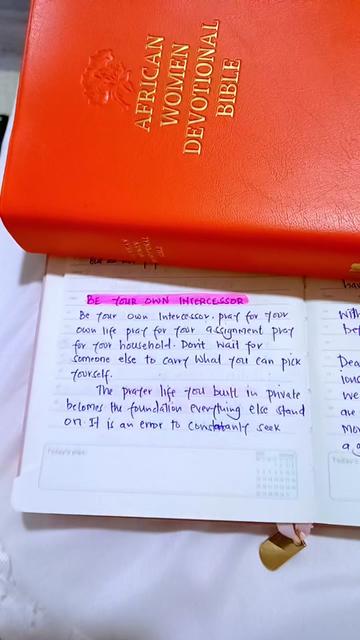 AFRICAN
WOMEN
DEVOTIONAL
BIBLE
BE YOUR OWN INTERCESSOR
Be your own Intercessor. pray for your
own life pray for your assignment pray
for your household. Don't wait for
someone else to carry what you can pick
yourself.
The prayer life you built in private
becomes the foundation everything else stand
on. It is an error to constantly seek
Today's plan: